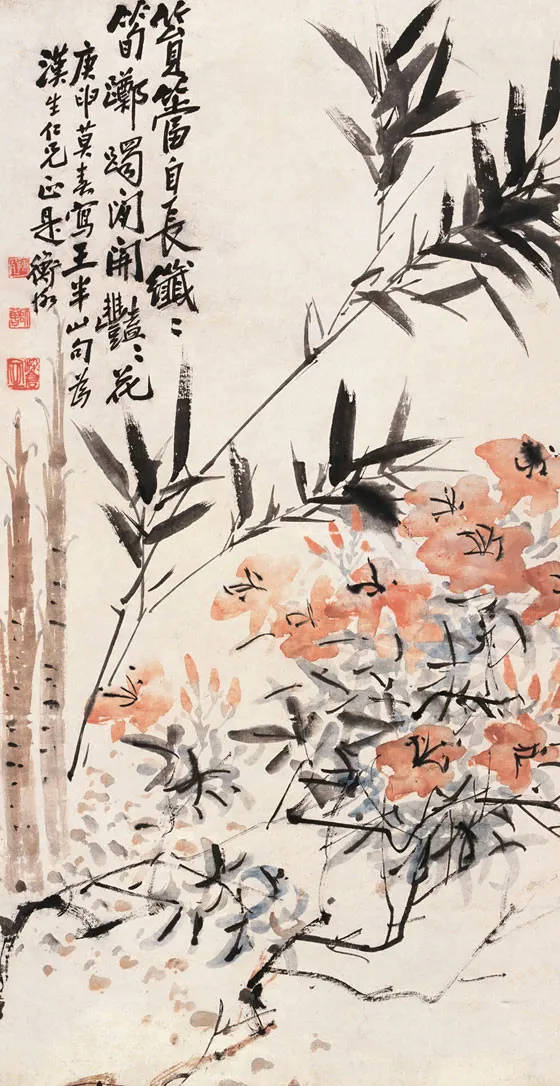 篔簹自長纖〻
筍躑躅閒開豔〻花
庚申莫春寫王半山句為
漢生仁兄正是衡恪